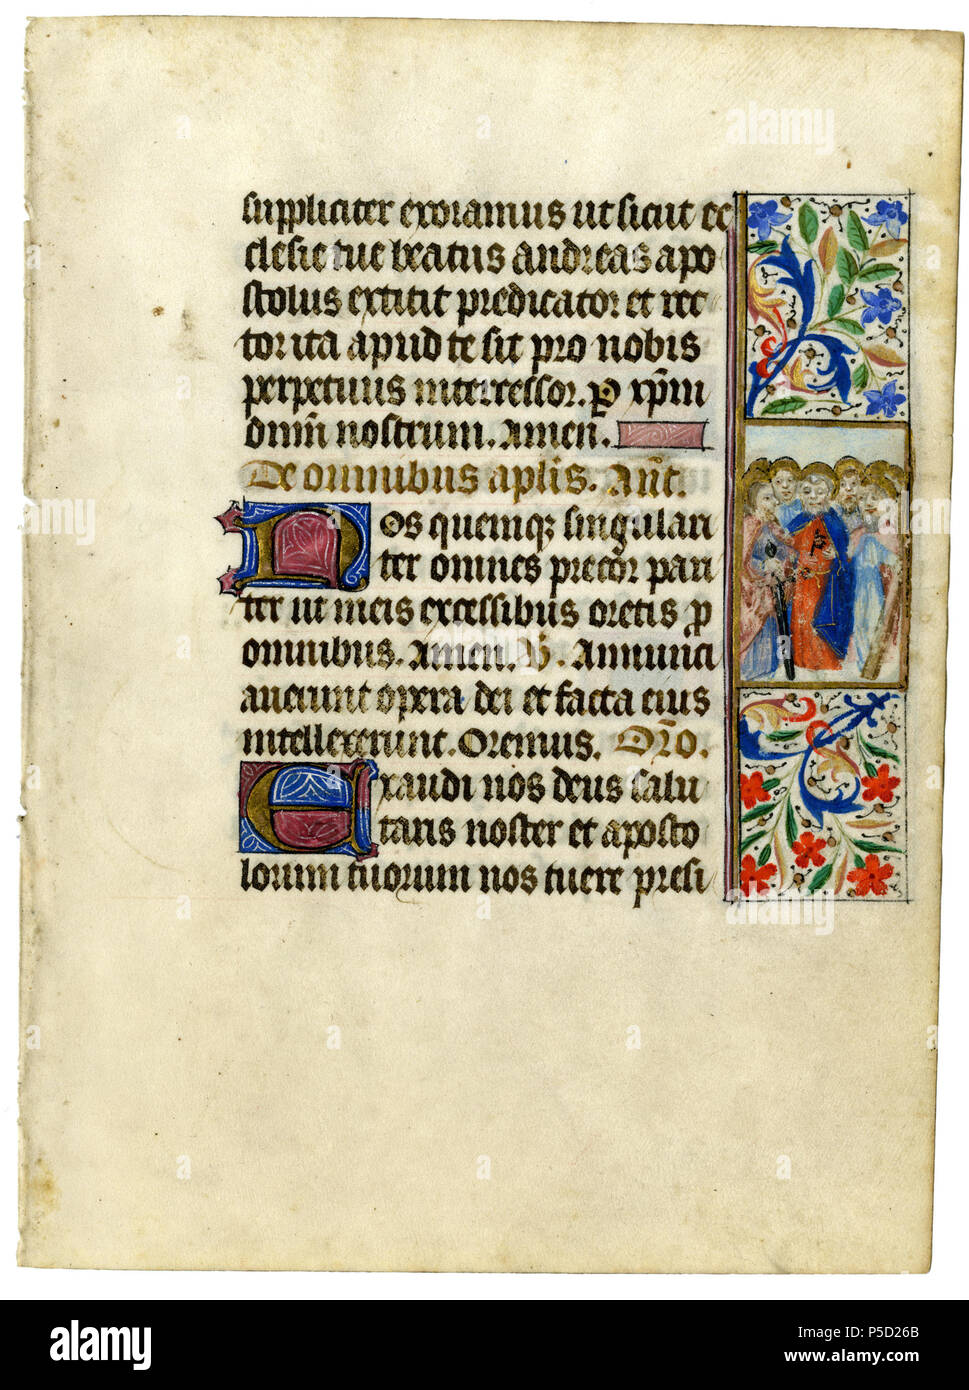 suppliciter exoramus ut sicut ec
clesie tue beatus andreas apo
stolus extitit predicator et rec
tor ita apud te sit pro nobis
perpetuus intercessor. p xpm
dnm nostrum. Amen.
De omnibus aplis. Ant.
Nos quemq; singulari
ter omnes precor pari
ter ut meis excessibus oretis p
omnibus. Amen. V. Annunci
auerunt opera dei et facta eius
intellexerunt. Oremus. Oro.
Exaudi nos deus salu
taris noster et aposto
lorum tuorum nos tuere presi
alamy
alamy
a
a
a
a
a
alamy
Image ID: P5D26B
www.alamy.com